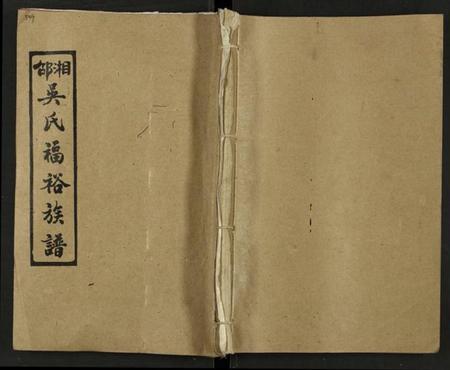 湘邵
吳氏福裕族譜